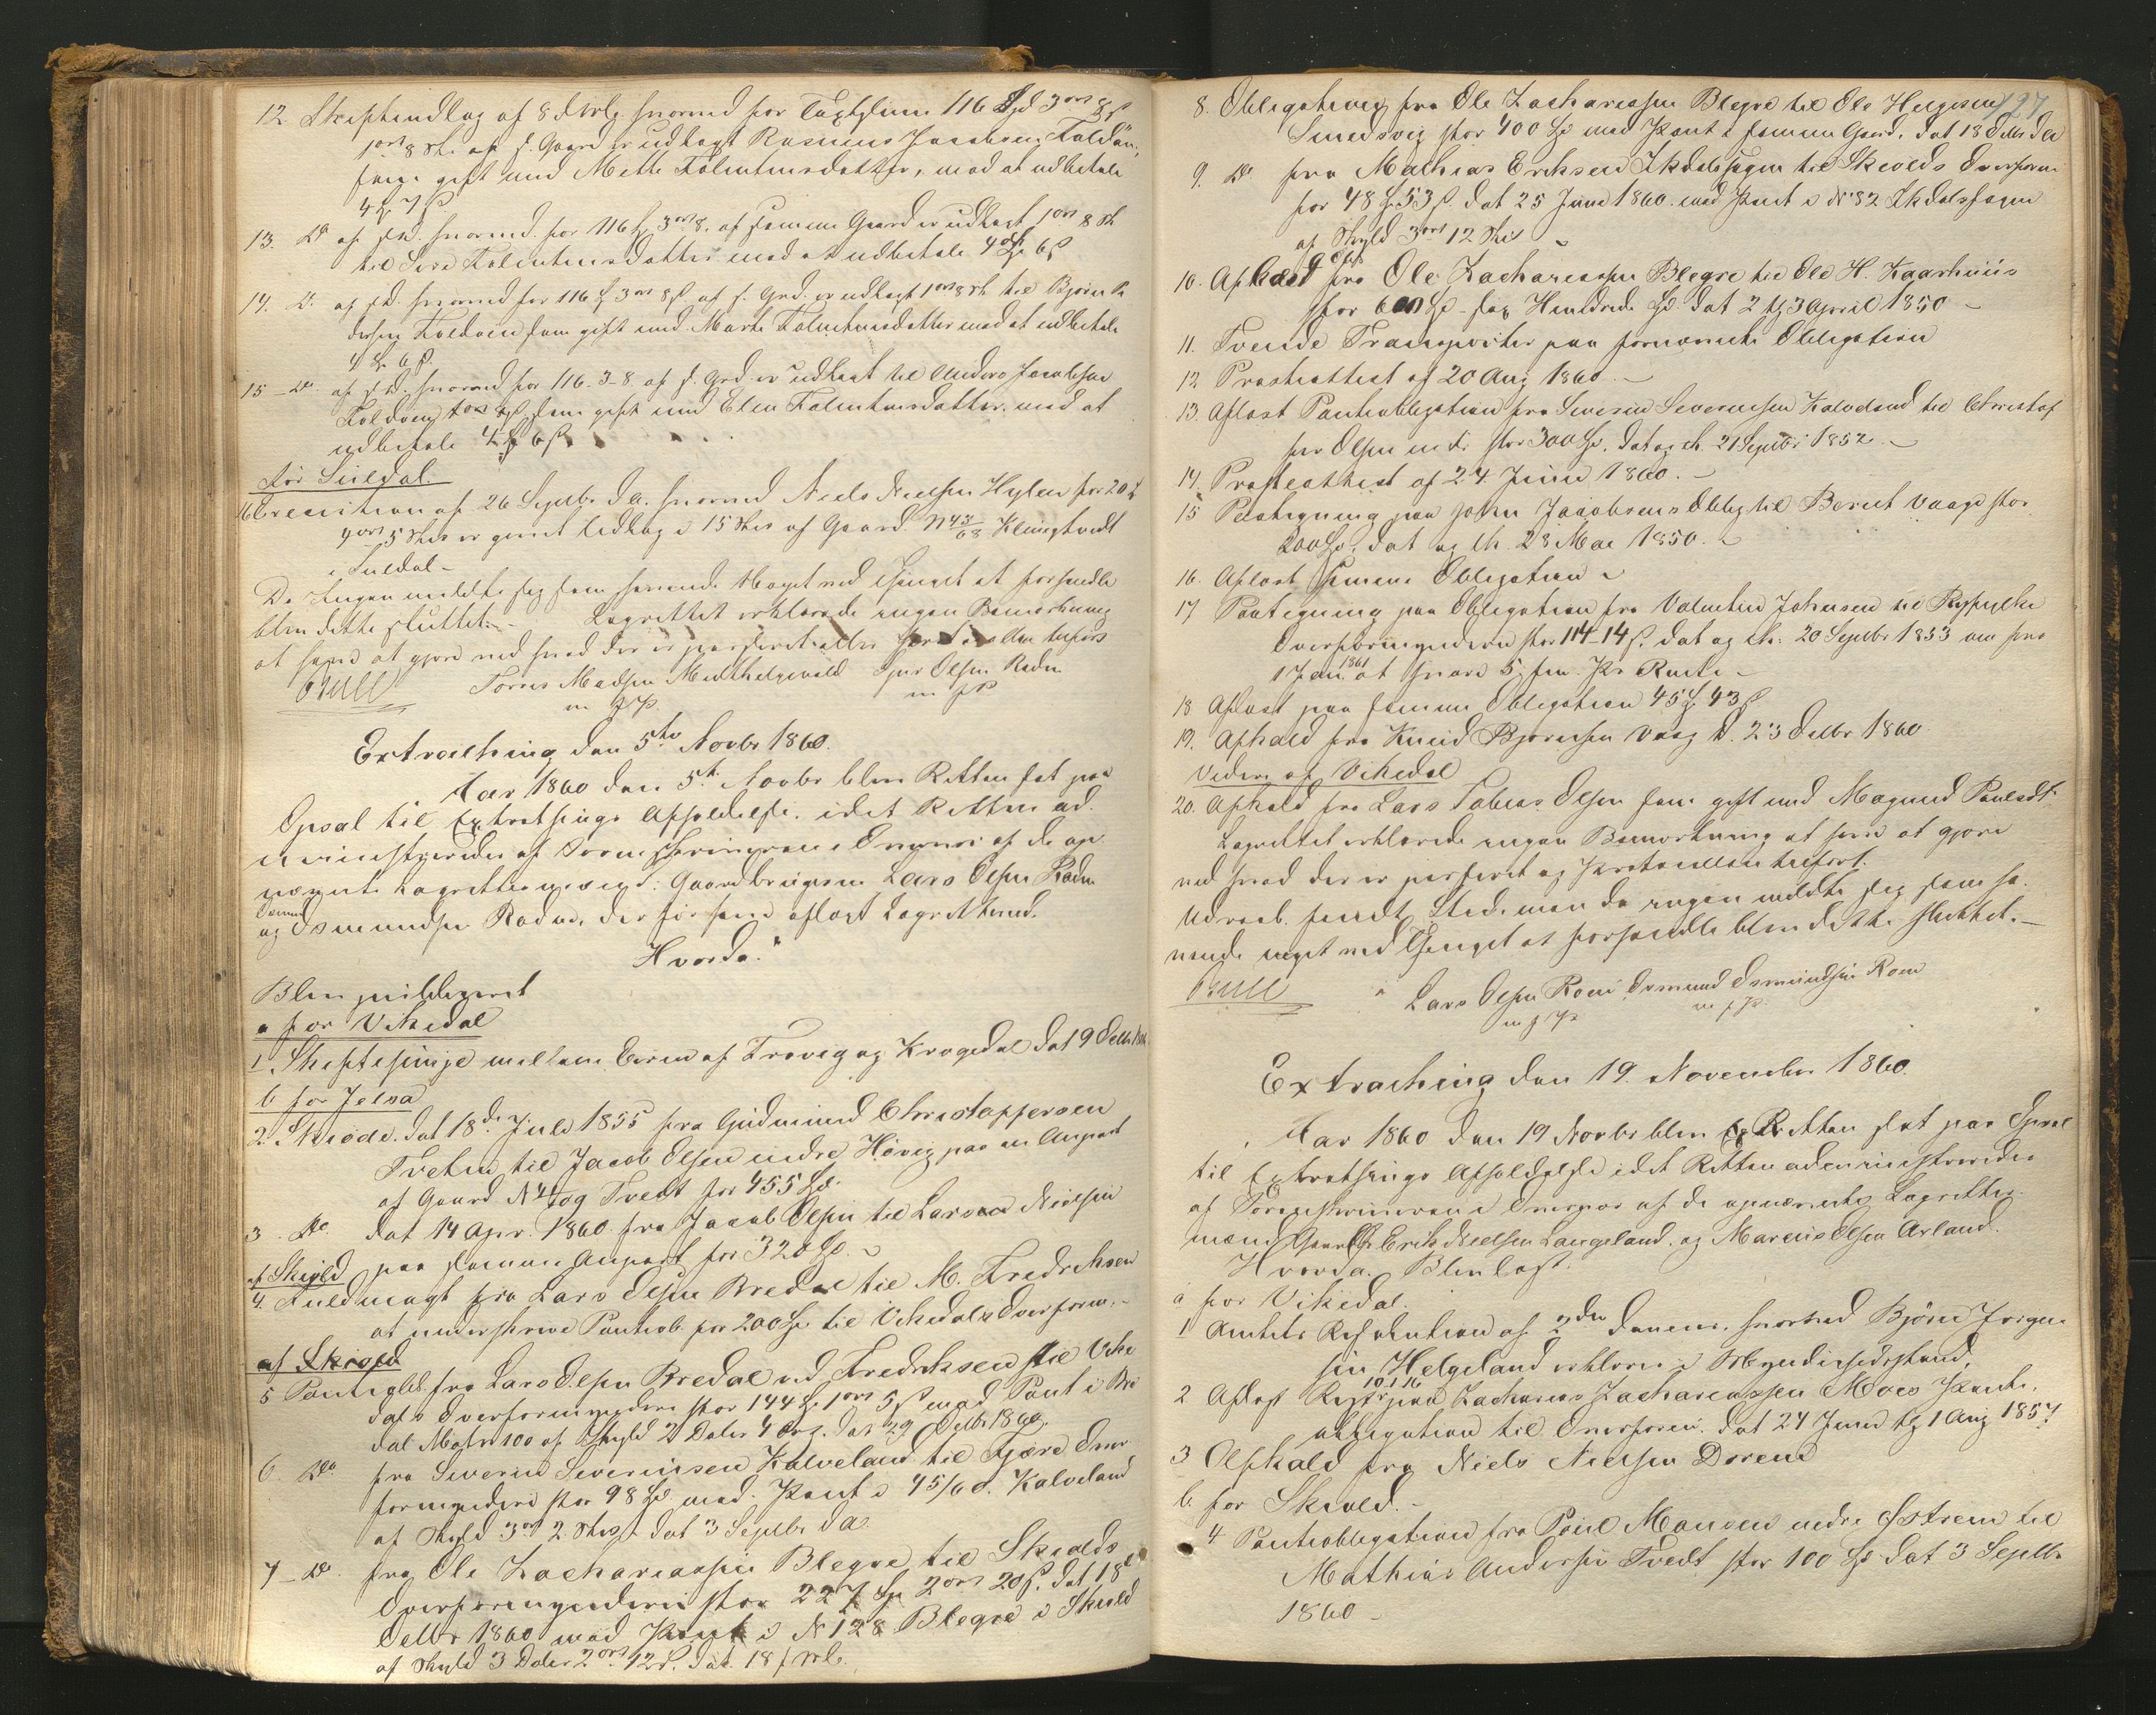 12. Skifteudlæg af 8 d. hvorved for Taxtsum 116 Spd 3 ort 8 ß
1 ort 8 sk. af s. Gaard er udlagt Rasmus Jacobsen Foldøen,
gift med Mette Falentinsdatter, mod at udbetale
4 7 ß.
13. Do af s.D. hvorved for 116 3 ort 8. af samme Gaard er udlagt 1 ort 8 sk
til Siri Falentinsdatter mod at udbetale 4 6 ß
14. Do af s.D. hvorved for 116 3 ort 8 ß af s. Grd. er udlagt 1 ort 8 sk til Bjørn
Foldøen som gift med Marta Falentinsdatter mod at udbetale
4 6 ß.
15 - Do af s.D. hvorved for 116-3-8. af s. Grd. er udlagt til Anders Jacobsen
Foldøen som gift med Elen Falentinsdatter, mod at
udbetale 4 6 ß
for Suledal.
16 af 26 Septbr d.A. hvorved Niels Nielsen Hylen for 20
4 ort 5 sk er gjort Udlæg i 15 af Gaard N 43/68 Klungtvedt
i Suledal -
Da Ingen meldte sig som havende Noget ved Thinget at forhandle
blev dette sluttet. - Lagrettet erklærede ingen Bemærkning
at have at gjøre ved hvad der er passeret
Bull Torres Madsen Mehelgevold Olsen Røden
m f P. m f P
Extrathing den 5te Novbr 1860.
Aar 1860 den 5te Novbr blev Retten sat paa
Opsal til Extrathings Afholdelse, idet Retten ad-
ministreredes af Sorenskriveren i Overvær af de op-
nævnte Lagrettesmænd: Gaardbrugerne Lars Olsen Røden
og Osmund Osmundsen Roden, der før have aflagt Lagretteed.
Hvorda:
Blev publiceret
a for Vikedal
1. Skifteskjøde mellem Eierne af Trovig og Krogedal dat 9 Octbr
b for Jelsa
2. Skiøde dat 18de Juli 1855 fra Gudmund Christophersen
Tvetne til Jacob Olsen nedre Høvig paa en Anpart
af Gaard N 4 Tvedt for 455 Spd.
3. Do dat 14 Apr. 1860 fra Jacob Olsen til Lars Nielsen
paa samme Anpart for 320 Spd.
af Skiold
4. Fuldmagt fra Lars Olsen Bredal til M. Fredriksen
at underskrive Panteob. for 200 Spd til Vikedals Overform.
af Skiold
5 Panteobl. fra Lars Olsen Bredal ved Fredriksen til Vike
dals Overformynderi stor 144 1 ort 5 ß med Pant i Bre
dal Matr 100 af Skyld 2 Daler 4 Ort. dat 29 Octbr 1860.
6. Do fra Severin Severinsen Kalveland til Fjære Over
formynderi stor 98 Spd med Pant i 45/60. Kalveland
af Skyld 3 ort 2 dat 3 Septbr d.a.
7 - Do fra Ole Zachariassen Blegre til Skiolds
Overformynderi stor 227 Spd 2 ort 20 ß. dat 18de
Octbr 1860 med Pant i N 128 Blegre i Skiold
af Skyld 3 Daler 2 ort 12 ß. dat. 18 f. M.
197
8. Obligation fra Ole Zachariassen Blegre til Ole Helgesen
Smedsvig stor 400 Spd med Pant i samme Gaard. dat 18 Octbr d.a
9. Do fra Mathias Eriksen Ekdalshagen til Skiolds Overform
for 48 53 ß. dat 25 Juni 1860. med Pant i N 82 Ekdalshagen
af Skyld 3 ort 12
10. Afkald fra Ole Zachariassen Blegre til Ole H. Kaarhuus
for 600 Spd - sex Hundrede Spd dat 2 3 April 1850 -
11. Tvende Transporter paa fornævnte Obligation
12 Prosteattest af 20 Aug 1860. -
13. Aflæst Panteobligation fra Severin Severinsen Kalveland til Christof
fer Olsen stor 300 Spd. dat og th. 21 Septbr 1852 -
14. Prosteattest af 24 Juni 1860. -
15 Paategning paa John Jacobsens Oblig til Berent Vaage stor
200 Spd. dat og th. 28 Mai 1850.
16. Aflæst samme Obligation
17 Paategning paa Obligation fra Valentin Johnsen til Ryfylke
Overformynderi stor 114-14 ß. dat og th: 20 Septbr 1853 om fra
1 Jan. 1861 at svare 5 Pr Rente -
18 Aflæst paa samme Obligation 45 43 ß
19. Afkald fra Knud Bjørnsen Vaag d. 23 Octbr 1860
Videre af Vikedal
20. Afkald fra Lars Tobias Olsen som gift med Magund Paulsdt.
Lagrettet erklærede ingen Bemærkning at have at gjøre
ved hvad der er passeret og Protocollen tilført.
Udraab fandt Sted. men da ingen meldte sig som ha-
vende noget ved Thinget at forhandle blev dette sluttet. -
Bull Lars Olsen Røen Osmund Osmundsen Roen
m f P m f P.
Extrathing den 19. November 1860.
Aar 1860 den 19 Novbr blev Retten sat paa Opsal
til Extrathings Afholdelse idet Retten administreredes
af Sorenskriveren i Overvær af de opnævnte Lagrettes-
mænd Erik Nielsen Langeland. og Marcus Olsen Arland.
Hvorda. Blev læst.
a for Vikedal.
1 Amtets Resolution af 2den dennes hvorved Bjørn
Helgeland erklæres i Myndighedsstand.
2 Aflæst paa Zacharias Zachariassen Moes Pante-
obligation til Overform. dat 24 Juni 1 Aug 1857
3 Afkald fra Niels Nielsen Dorene
b. for Skiold. -
4 Panteobligation fra Poul Monsen nedre Østrem til
Mathias Andersen Tvedt stor 100 Spd dat 3 Septbr
1860 -